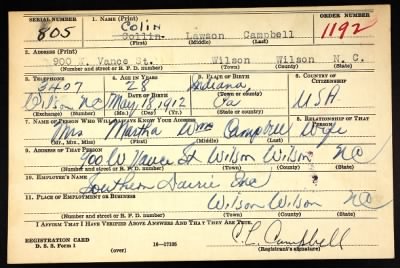 SERIAL NUMBER 1. NAME (Print) ORDER NUMBER
Colin
805 Collin Lawson Campbell 1192
(First) (Middle) (Last)
2. ADDRESS (Print)
900 W. Vance St. Wilson Wilson N. C.
(Number and street or R. F. D. number) (Town) (County) (State)
3. TELEPHONE 4. AGE IN YEARS 5. PLACE OF BIRTH 6. COUNTRY OF CITIZENSHIP
3407 28 Indiana
DATE OF BIRTH
Wilson NC May 18, 1912 Pa USA
(Exchange) (Number) (Mo.) (Day) (Yr.) (State or country)
7. NAME OF PERSON WHO WILL ALWAYS KNOW YOUR ADDRESS 8. RELATIONSHIP OF THAT PERSON
Mrs Martha Campbell Wife
(Mr., Mrs., Miss) (First) (Middle) (Last)
9. ADDRESS OF THAT PERSON
900 W Vance St Wilson Wilson NC
(Number and street or R. F. D. number) (Town) (County) (State)
10. EMPLOYER'S NAME
Southern Inc
11. PLACE OF EMPLOYMENT OR BUSINESS
Wilson Wilson NC
(Number and street or R. F. D. number) (Town) (County) (State)
I AFFIRM THAT I HAVE VERIFIED ABOVE ANSWERS AND THAT THEY ARE TRUE.
REGISTRATION CARD C. L. Campbell
D. S. S. Form 1 (over) 16—17105 (Registrant's signature)